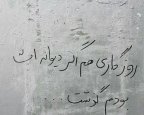 روزگاری هم اگر دیوانه ات
بودم گذشت ...